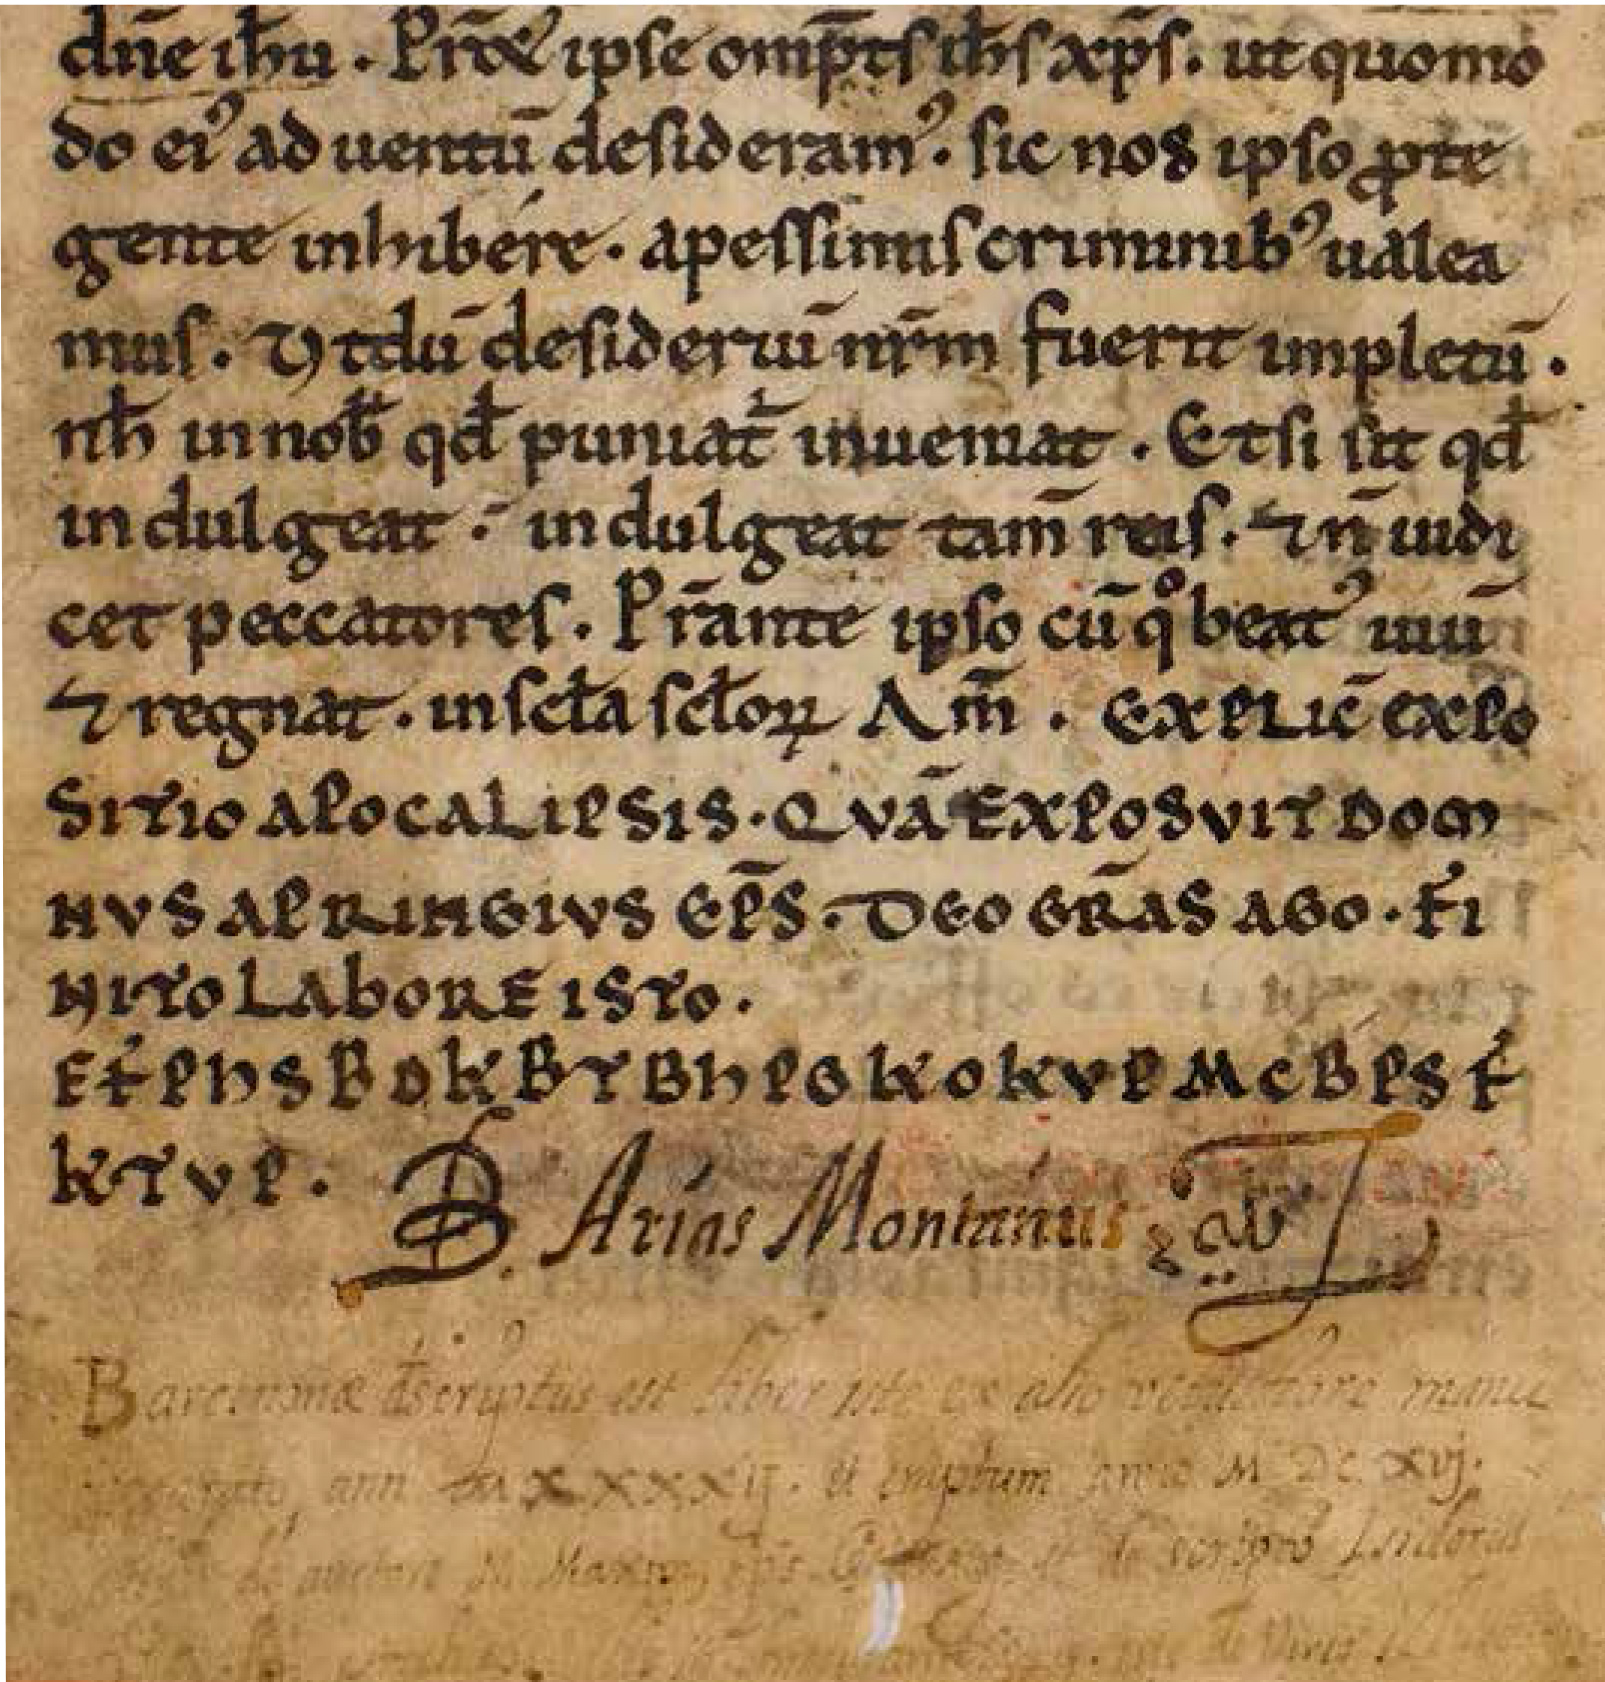 dn̄e ih̄u . Pr̄ѐ ipse omp̄ts ih̄s xp̄s . ut quomo
do ei᾿ aduentū desideram᾿ . sic nos ipso ꝓte
gente inhibére . apessimis criminib᾿ ualea
mus . Vtdū desideriū nr̄m fuerit impletū .
nh̄ innob̄ qd̄ puniat̄ inueniat . Etsi sit qd̄
indulgeat : indulgeat tam̄ reis . ⁊ n̄ iudi
cet peccatores . Pr̄ante ipso cū qͦ beat᾿ uiuū
⁊ regnat . inscl̄a scl̄oꝝ Am̄ . EXPLIC̄ EXPO
SITIO APOCALIPSIS . QVĀ EXPOSVIT DOM
NVS APRINGIVS EP̄S . DEO GR̄AS AGO . FI
NITO LABORE ISTO .
EFPHSBDKBTBHPGKOKVPMCBPSF
KTVP .
B. Arias Montanus
Barcinonæ descriptus est liber iste ex alio vetustiore manu
scripto, ann MXXXXIJ. et emptum anno M DC XVJ.